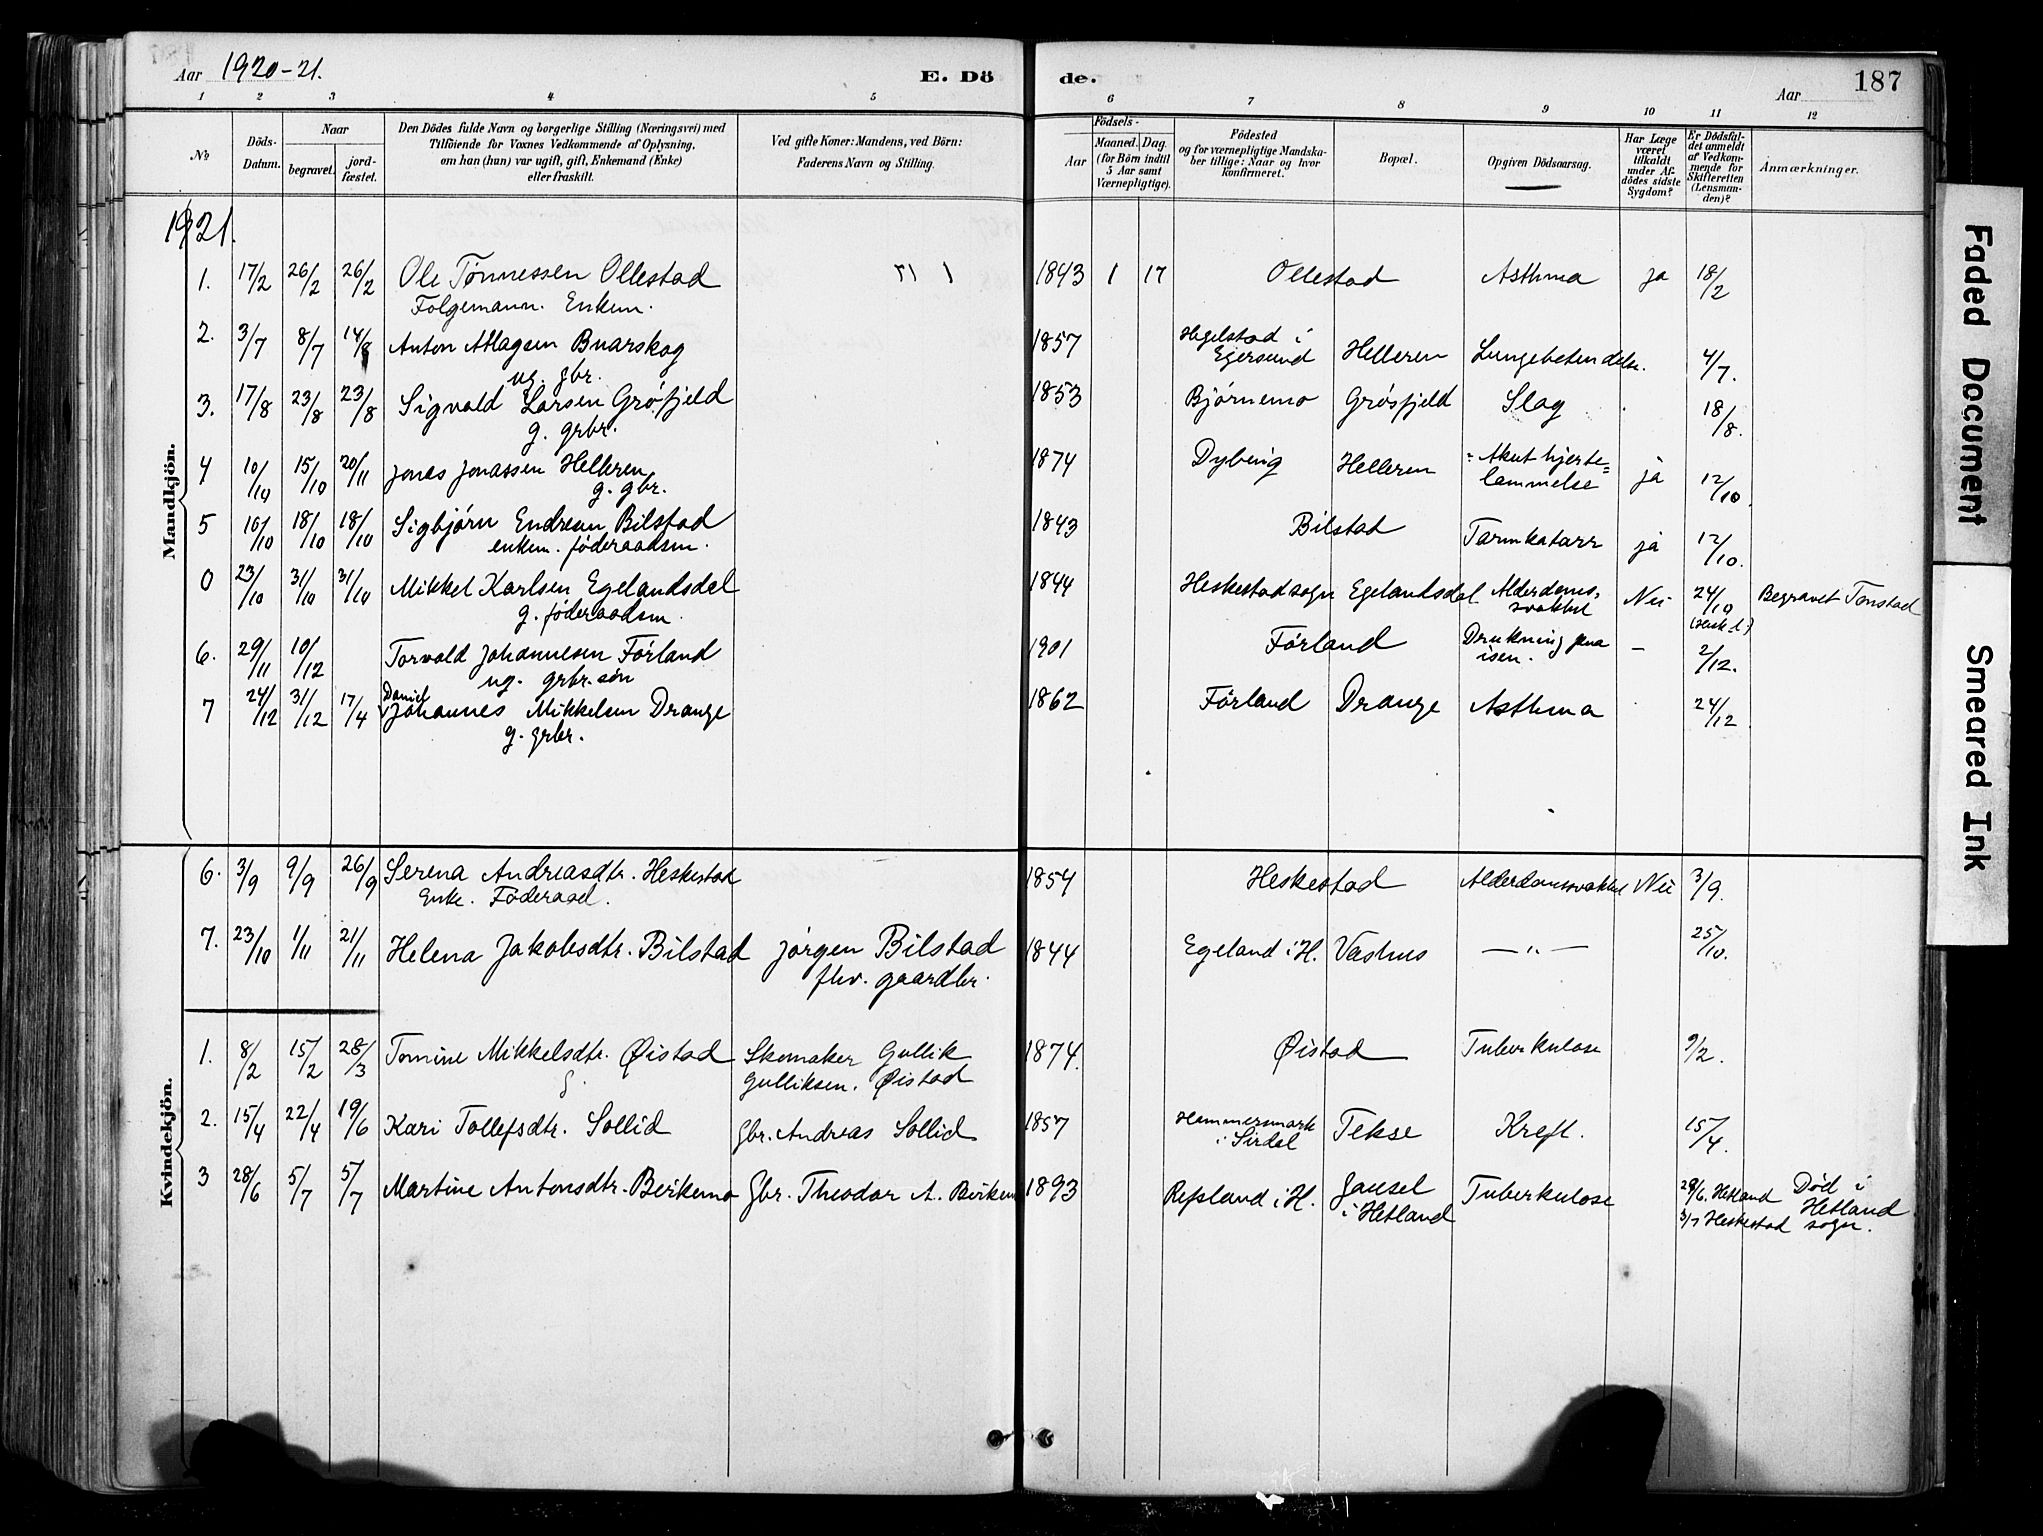 Aar 1920-21.
E. Dö
de.
Aar
187
1 2 3 4 5 6 7 8 9 10 11 12
№
Döds-Datum.
Naar
begravet.
jord-fæstet.
Den Dödes fulde Navn og borgerlige Stilling (Næringsvei) med
Tilföiende for Voxnes Vedkommende af Oplysning,
om han (hun) var ugift, gift, Enkemand (Enke)
eller fraskilt.
Ved gifte Koner: Mandens, ved Börn:
Faderens Navn og Stilling.
Födsels-
Aar
Maaned. Dag.
(for Börn indtil
5 Aar samt
Værnepligtige).
Födested
og for værnepligtige Mandska-
ber tillige: Naar og hvor
konfirmeret.
Bopæl.
Opgiven Dödsaarsag.
Har Læge
været
tilkaldt
under Af-
dödes sidste
Sygdom?
Er Dödsfal-
det anmeldt
af Vedkom-
mende for
Skifteretten
(Lensman-
den)?
Anmærkninger.
Mandkjön.
1921.
1. 17/2 26/2 26/2 Ole Tønnessen Ollestad 1843 1 17 Ollestad Asthma ja 18/2
Folgemann. Enkem.
2. 3/7 8/7 14/8 Anton Atlagsen Buarskog 1857 Hegelstad i Egersund Helleren Lungebetendelse. 4/7.
ug. gbr.
3. 17/8 23/8 23/8 Sigvald Larsen Grøsfjeld 1853 Bjørnemo Grøsfjeld Slag 18/8.
g. grbr.
4 10/10 15/10 20/11 Jonas Jonassen Helleren 1874 Dybing Helleren Akut hjerte=lammelse ja 12/10.
g. gbr.
5 10/10 18/10 18/10 Sigbjørn Endresen Bilstad 1843 Bilstad Tarmkatarr ja 12/10.
enkem. føderaadsm.
0 23/10 31/10 31/10 Mikkel Karlsen Egelandsdal 1844 Heskestad sogn Egelandsdal Alderdoms-svakhet Nei 24/10 Begravet Tonstad
g. føderaadsm.
6. 29/11 10/12 Torvald Johannesen Førland 1901 Førland Drukning isen. - 2/12.
ug. grbr. søn
7 24/12 31/12 17/4 Daniel Johannes Mikkelsen Drange 1862 Førland Drange Asthma 24/12
g. grbr.
Kvindekjön.
6. 3/9 9/9 26/9 Serena Andreasdtr. Heskestad 1854 Heskestad Alderdomssvakhet Nei 3/9.
Enke. Føderaad.
7. 23/10 1/11 21/11 Helena Jakobsdtr. Bilstad Jørgen Bilstad 1844 Egeland i H. Vashus — „ — 25/10.
fhv. gaardbr.
1. 8/2 15/2 28/3 Tomine Mikkelsdtr. Øistad Skomaker Gullik 1874. Øistad Tuberkulose 9/2.
g Gulliksen. Øistad
2. 15/4 22/4 19/6 Kari Tollefsdtr. Sollid gbr. Andreas Sollid 1857 Hammersmark i Sirdal Tekse Kreft. 15/4.
3 28/6 5/7 5/7 Martine Antonsdtr. Birkemo Gbr. Theodor A. Birkem 1893 Refsland i H. Gausel i Hetland Tuberkulose 29/6. Hetland 3/7 Heskestad Død i Hetland sogn.
Faded Document
Smeared Ink